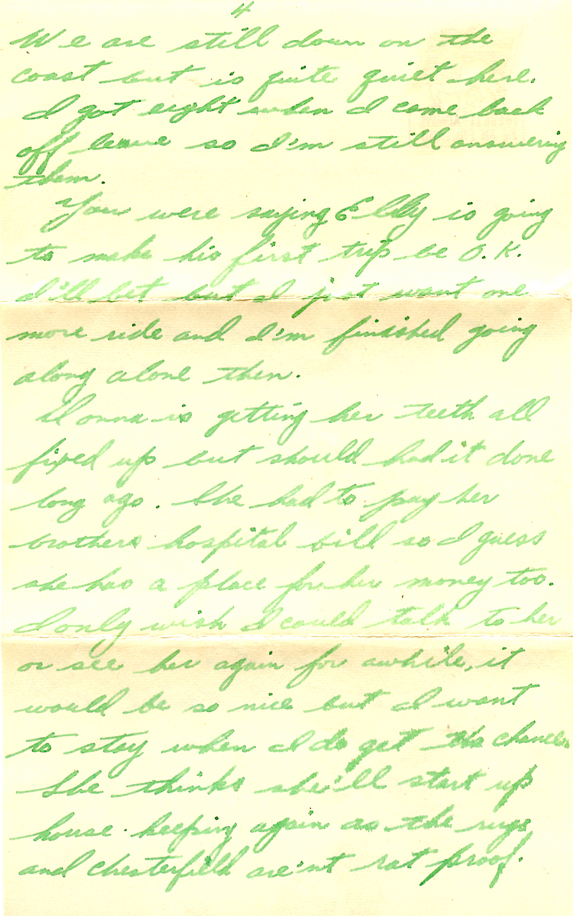 4
We are still down on the
coast but is quite quiet here.
I got eight when I came back
off leave so I'm still answering
them.
You were saying Elly is going
to make his first trip be O.K.
I'll bet but I just want one
more ride and I'm finished going
along alone then.
Donna is getting her teeth all
fixed up but should had it done
long ago. She had to pay her
brothers hospital bill so I guess
she has a place for her money too.
I only wish I could talk to her
or see her again for awhile, it
would be so nice but I want
to stay when I do get the chance.
She thinks she'll start up
house keeping again as the rugs
and chesterfield are'nt rat proof.